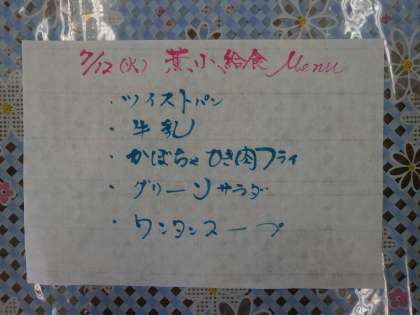 7/12(火) 葉小給食 Menu
・ツイストパン
・牛乳
・かぼちゃひき肉フライ
・グリーンサラダ
・ワンタンスープ